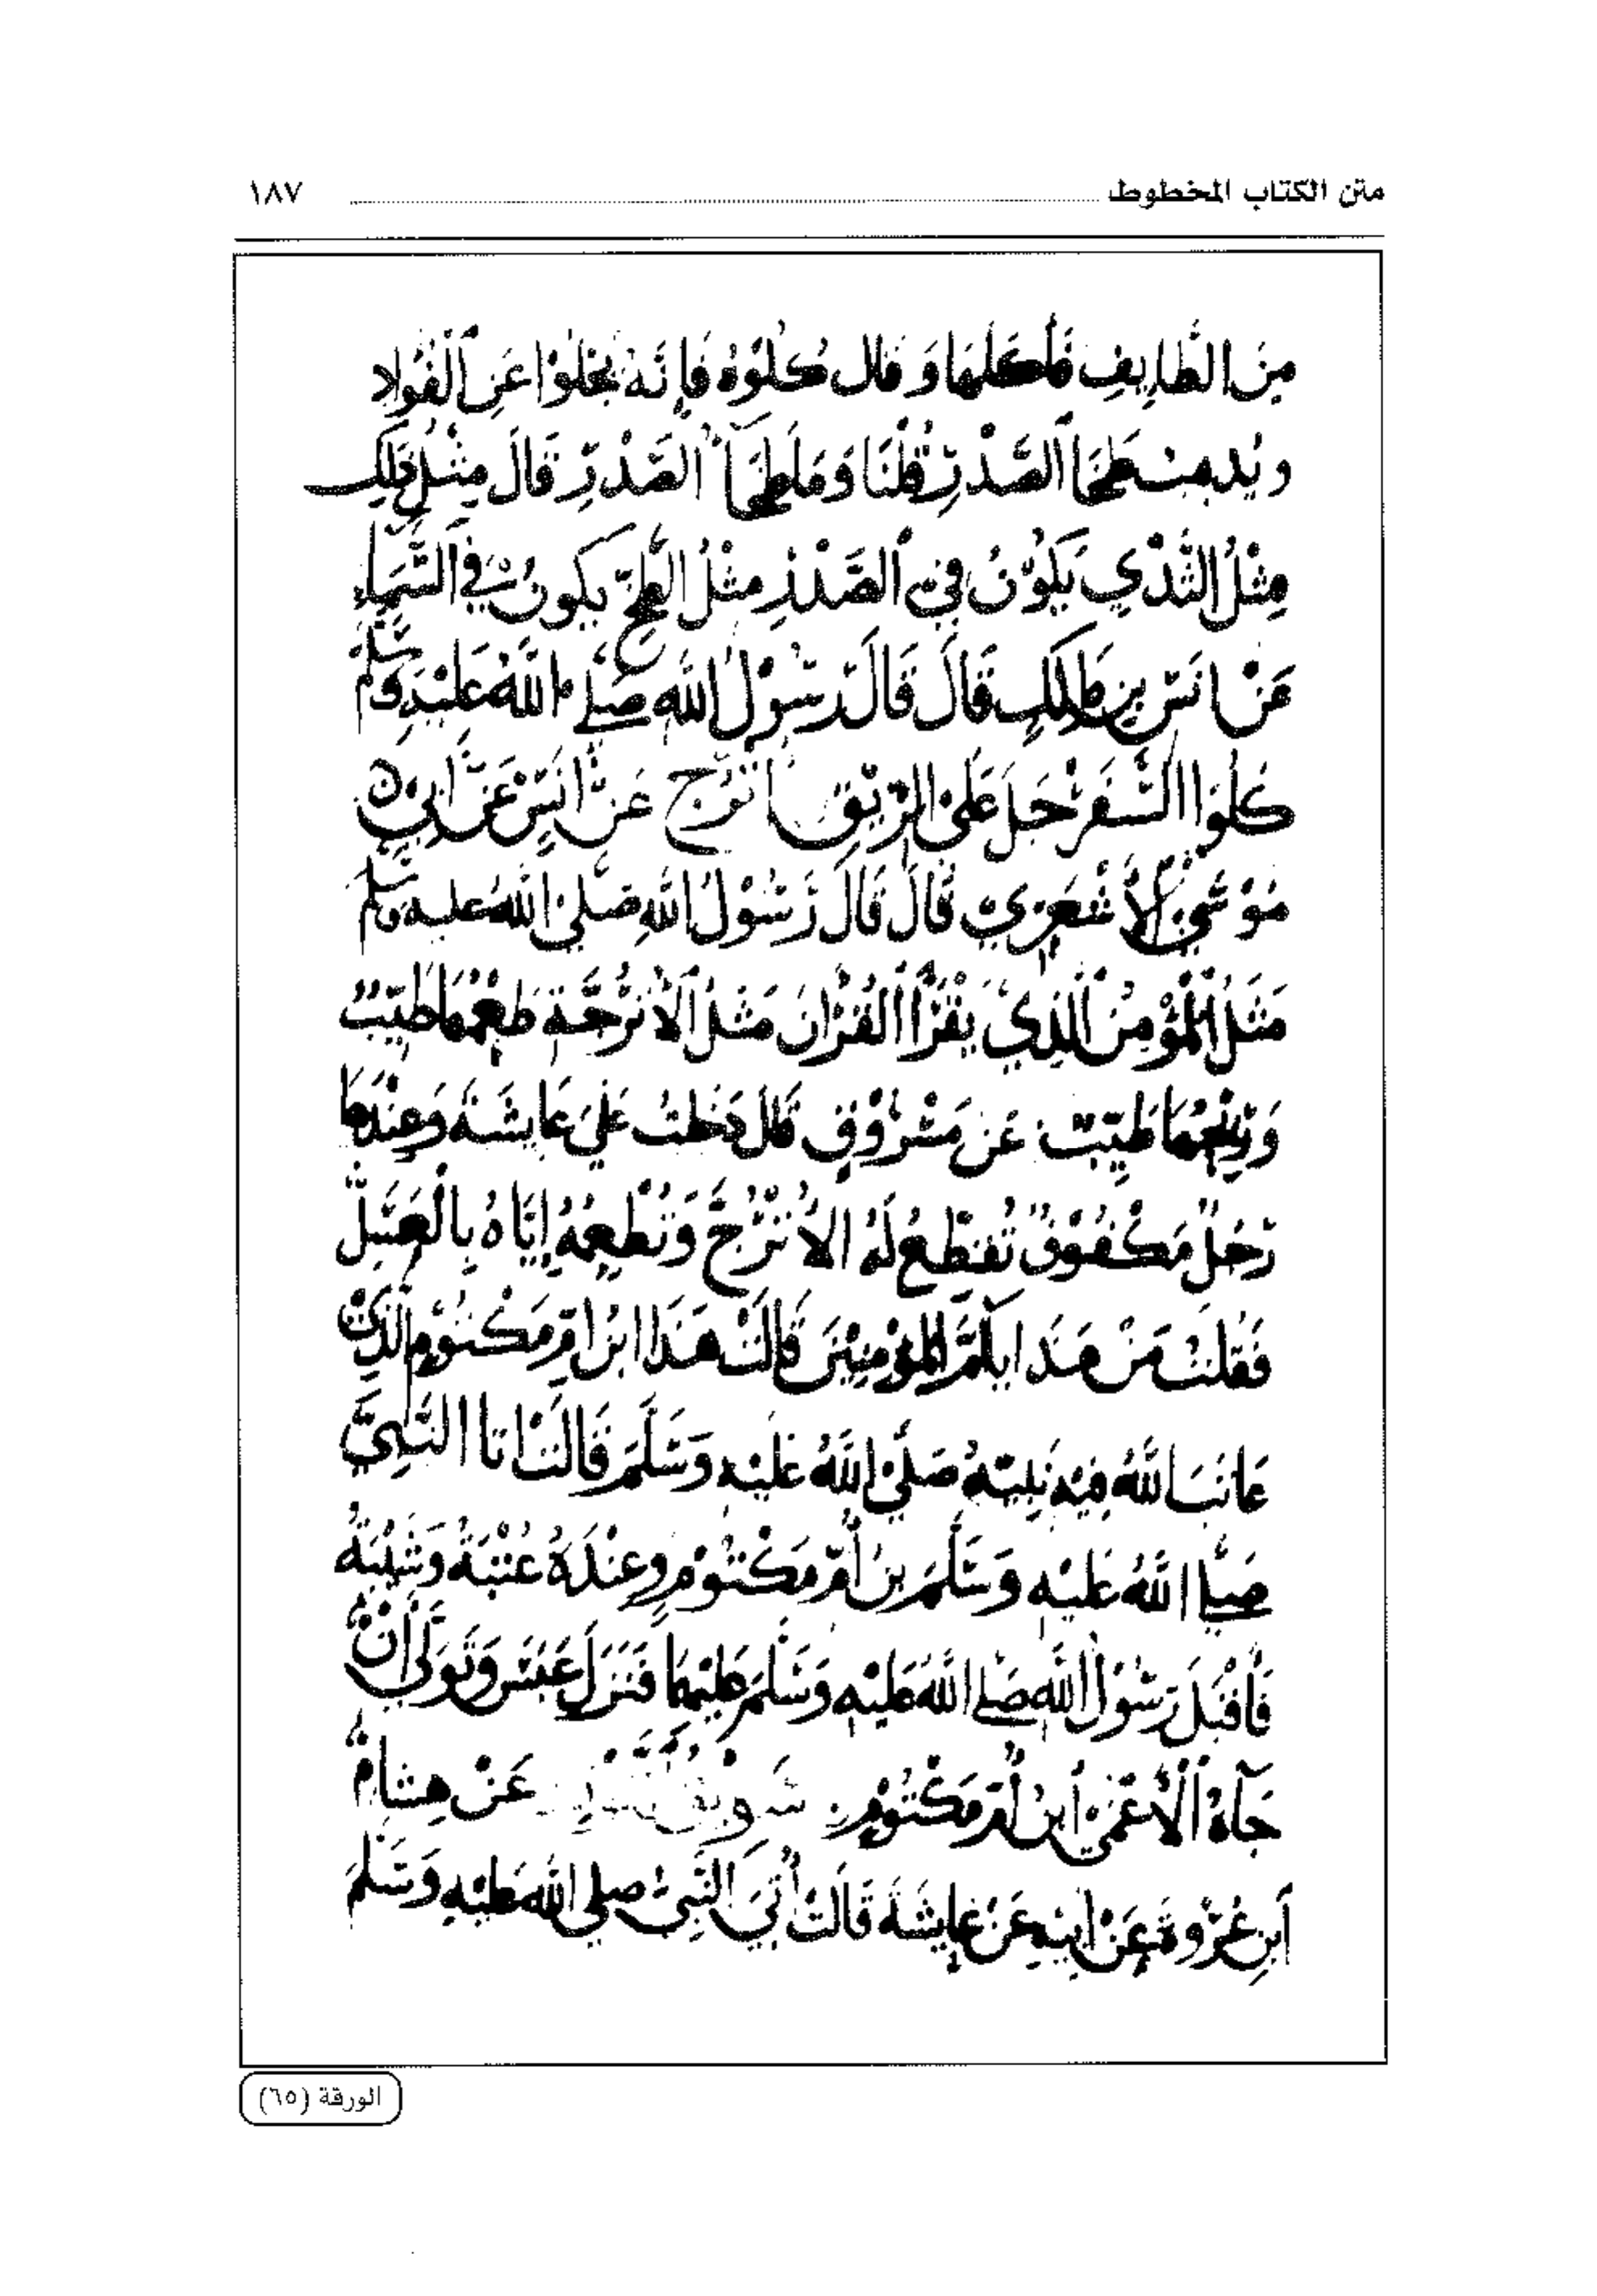 متن الكتاب المخطوط ١٨٧
مِنَ الطَّايِفِ فَأَكَلَهَا وَقَالَ كُلُوْهُ فَإِنَّهُ يَجْلُوْا عَنِ الْفُوَادِ
وَيُذهِبُ طَخَا الصَّدْرِ قُلْنَا وَمَا طَخَآ الصَّدْرِ قَالَ مِثْلُ ذَلِك
مِثْلُ الَّذِي يَكُوْنُ فِي الصَّدْرِ مِثْلُ يَكُونُ فِي السَّمَاءِ
عَنْ انَسِ بِنِ مَالِكٍ قَالَ قَالَ رَسُوْلُ اللَّهِ صَلَّى اللَّهُ عَلَيْهِ وَسَلَّمَ
كُلُوَا السَّفَرْجَلَ عَلَى الرِّيْقِ اُتْرُجّ عَنْ أَنَسٍ عَنْ أَبِي
مُوْسَى الْأَشْعَرِي قَالَ قَالَ رَسُوْلُ اللَّهِ صَلَّى اللَّهُ عليه وسَلَّمَ
مَثَلُ الْمُؤْمِنِ الَّذِيْ يَقْرَأُ الْقُرْانَ مَثَلُ الْأُتْرُجَّةِ طَعْمُهَا طَيِّبٌ
وَرِيْحُهَا طَيِّبٌ عَنْ مَسْرُوْقٍ قَالَ دَخَلتُ عَلَى عَايِشَةَ وَعِنْدَهَا
رَجُلٌ مَكْفُوْفٌ تُقَطِّعُ لَهُ الْأُتْرُجَّ وَتُطْعِمُهُ إِيَّاهُ بِالْعَسَلِ
فَقُلتُ مَنْ هَذَا يَا أُمَّ الْمُؤْمِنِيْنَ قَالَتْ هَذَا ابْنُ امِّ مَكْتُوْمٍ الَّذِيْ
عَاتَبَ اللَّهُ فِيْهِ نَبِيَّهُ صَلَّى اللَّهُ عَلَيْهِ وَسَلَّمَ قَالَتْ اتَا النَّبِيَّ
صَلَّى اللَّهُ عَلَيْهِ وَسَلَّمَ بنُ أُمِّ مَكْتُوْمٍ وعِنْدَهُ عُتْبَةُ وَشَيْبَةُ
فَأَقْبَلَ رَسُوْلُ اللَّهِ صَلَّى اللَّهُ عَلَيْهِ وَسَلَّمَ عَلَيْهِمَا فَنَزَلَ عَبَسَ وَتَوَلَّى أَنْ
جَآهُ الْأَعْمَى ابنُ أُمِّ مَكْتُوْمٍ عَنْ هِشَامْ
ابنِ عُرْوَةَ عَنْ ابِيْهِ عَنْ عَايِشَةَ قَالَتْ أُتِيَ النَّبِيُّ صلى اللَّهُ عَلَيْهِ وَسَلَّمَ
الورقة (٦٥)